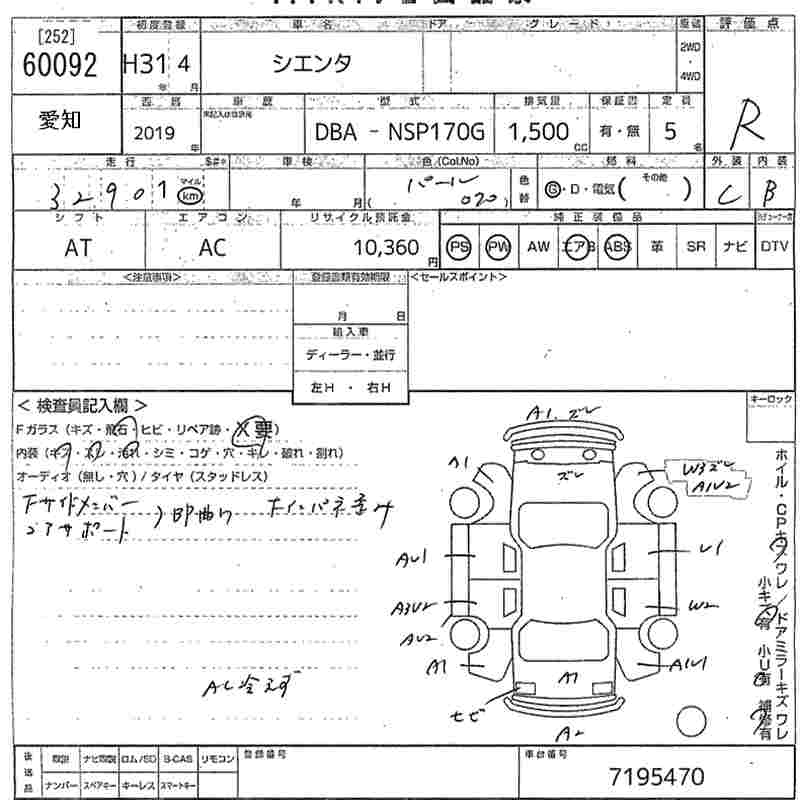 [252]
60092
愛知
初度登録 車名 ドア グレード 車歴 評価点
H31 年 4 月 シエンタ 2WD・4WD R
車歴 型式 排気量 保証書 定員
2019 年 DBA - NSP170G 1,500 CC 有・無 5 名
走行 車検 色(Col.No) 燃料 外装 内装
32901 マイル km 年 月 パール 070 色替 G・D・電気( その他 ) C B
シフト エアコン リサイクル預託金 純正装備品
AT AC 10,360 円 PS PW AW エアB ABS 革 SR ナビ DTV
<注意事項> 登録書類有効期限 <セールスポイント>
月 日
輸入車
ディーラー・並行
左H ・ 右H
< 検査員記入欄 > キーロック
Fガラス (キズ・飛石・ヒビ・リペア跡・X要)
内装 (キズ・スレ・汚れ・シミ・コゲ・穴・キレ・破れ・割れ)
オーディオ (無し・穴) / タイヤ (スタッドレス)
Fサイドメンバー
コアサポート
)即曲り
AC冷えず
A1.ズレ
ズレ
A1
W3ズレ
A1U2
AU1
U1
A3U2
W2
AU2
A1
A1U1
A1
ヒビ
A2
ホイル・CPキズワレ/ドアミラーキズワレ
小キズ有 小U有 補修有
後送品 取説 ナビ取説 ロム/SD B-CAS リモコン 登録番号 車台番号
ナンバー スペアキー キーレス スマートキー 7195470